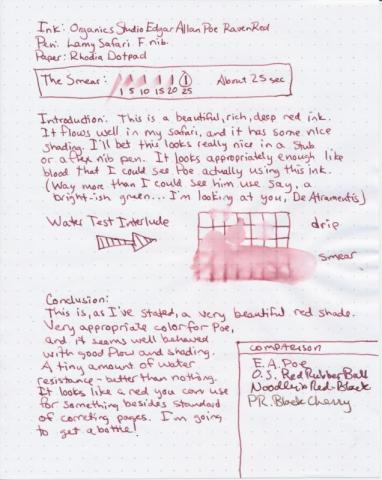 Ink: Organics Studio Edgar Allan Poe Raven Red
Pen: Lamy Safari F nib.
Paper: Rhodia Dotpad
The Smear:
1 5 10 15 20 25
About 25 sec
Introduction: This is a beautiful, rich, deep red ink.
It flows well in my safari, and it has some nice
shading. I'll bet this looks really nice in a stub
or a flex nib pen. It looks appropriately enough like
blood that I could see Poe actually using this ink.
(Way more than I could see him use say, a
bright-ish green... I'm looking at you, De Atramentis)
Water Test Interlude
drip
smear
Conclusion:
This is, as I've stated, a very beautiful red shade.
Very appropriate color for Poe,
and it seems well behaved
with good flow and shading.
A tiny amount of water
resistance - better than nothing.
It looks like a red you can use
for something besides standard
of correcting pages. I'm going
to get a bottle!
comparison
E.A. Poe
O.S. Red Rubber Ball
Noodler's Red-Black
P.R. Black Cherry